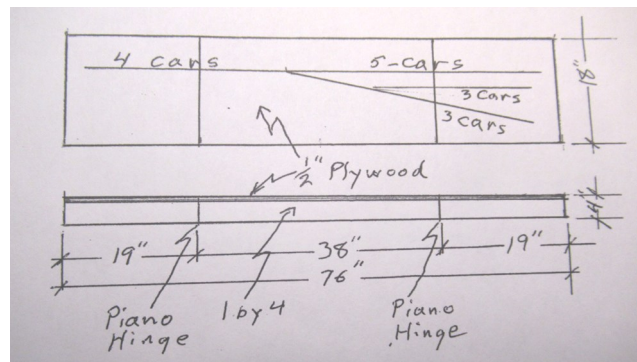 4 cars
5-cars
3 cars
3 cars
18"
1/2" Plywood
4"
19"
38"
19"
76"
Piano
Hinge
1 by 4
Piano
Hinge